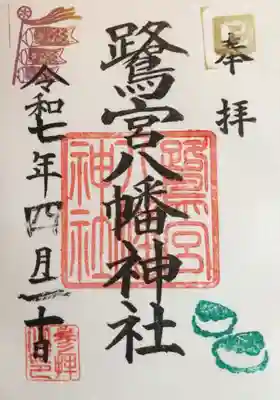 奉拝
鷺宮八幡神社
鷺宮
八幡
神社
令和七年四月二十日